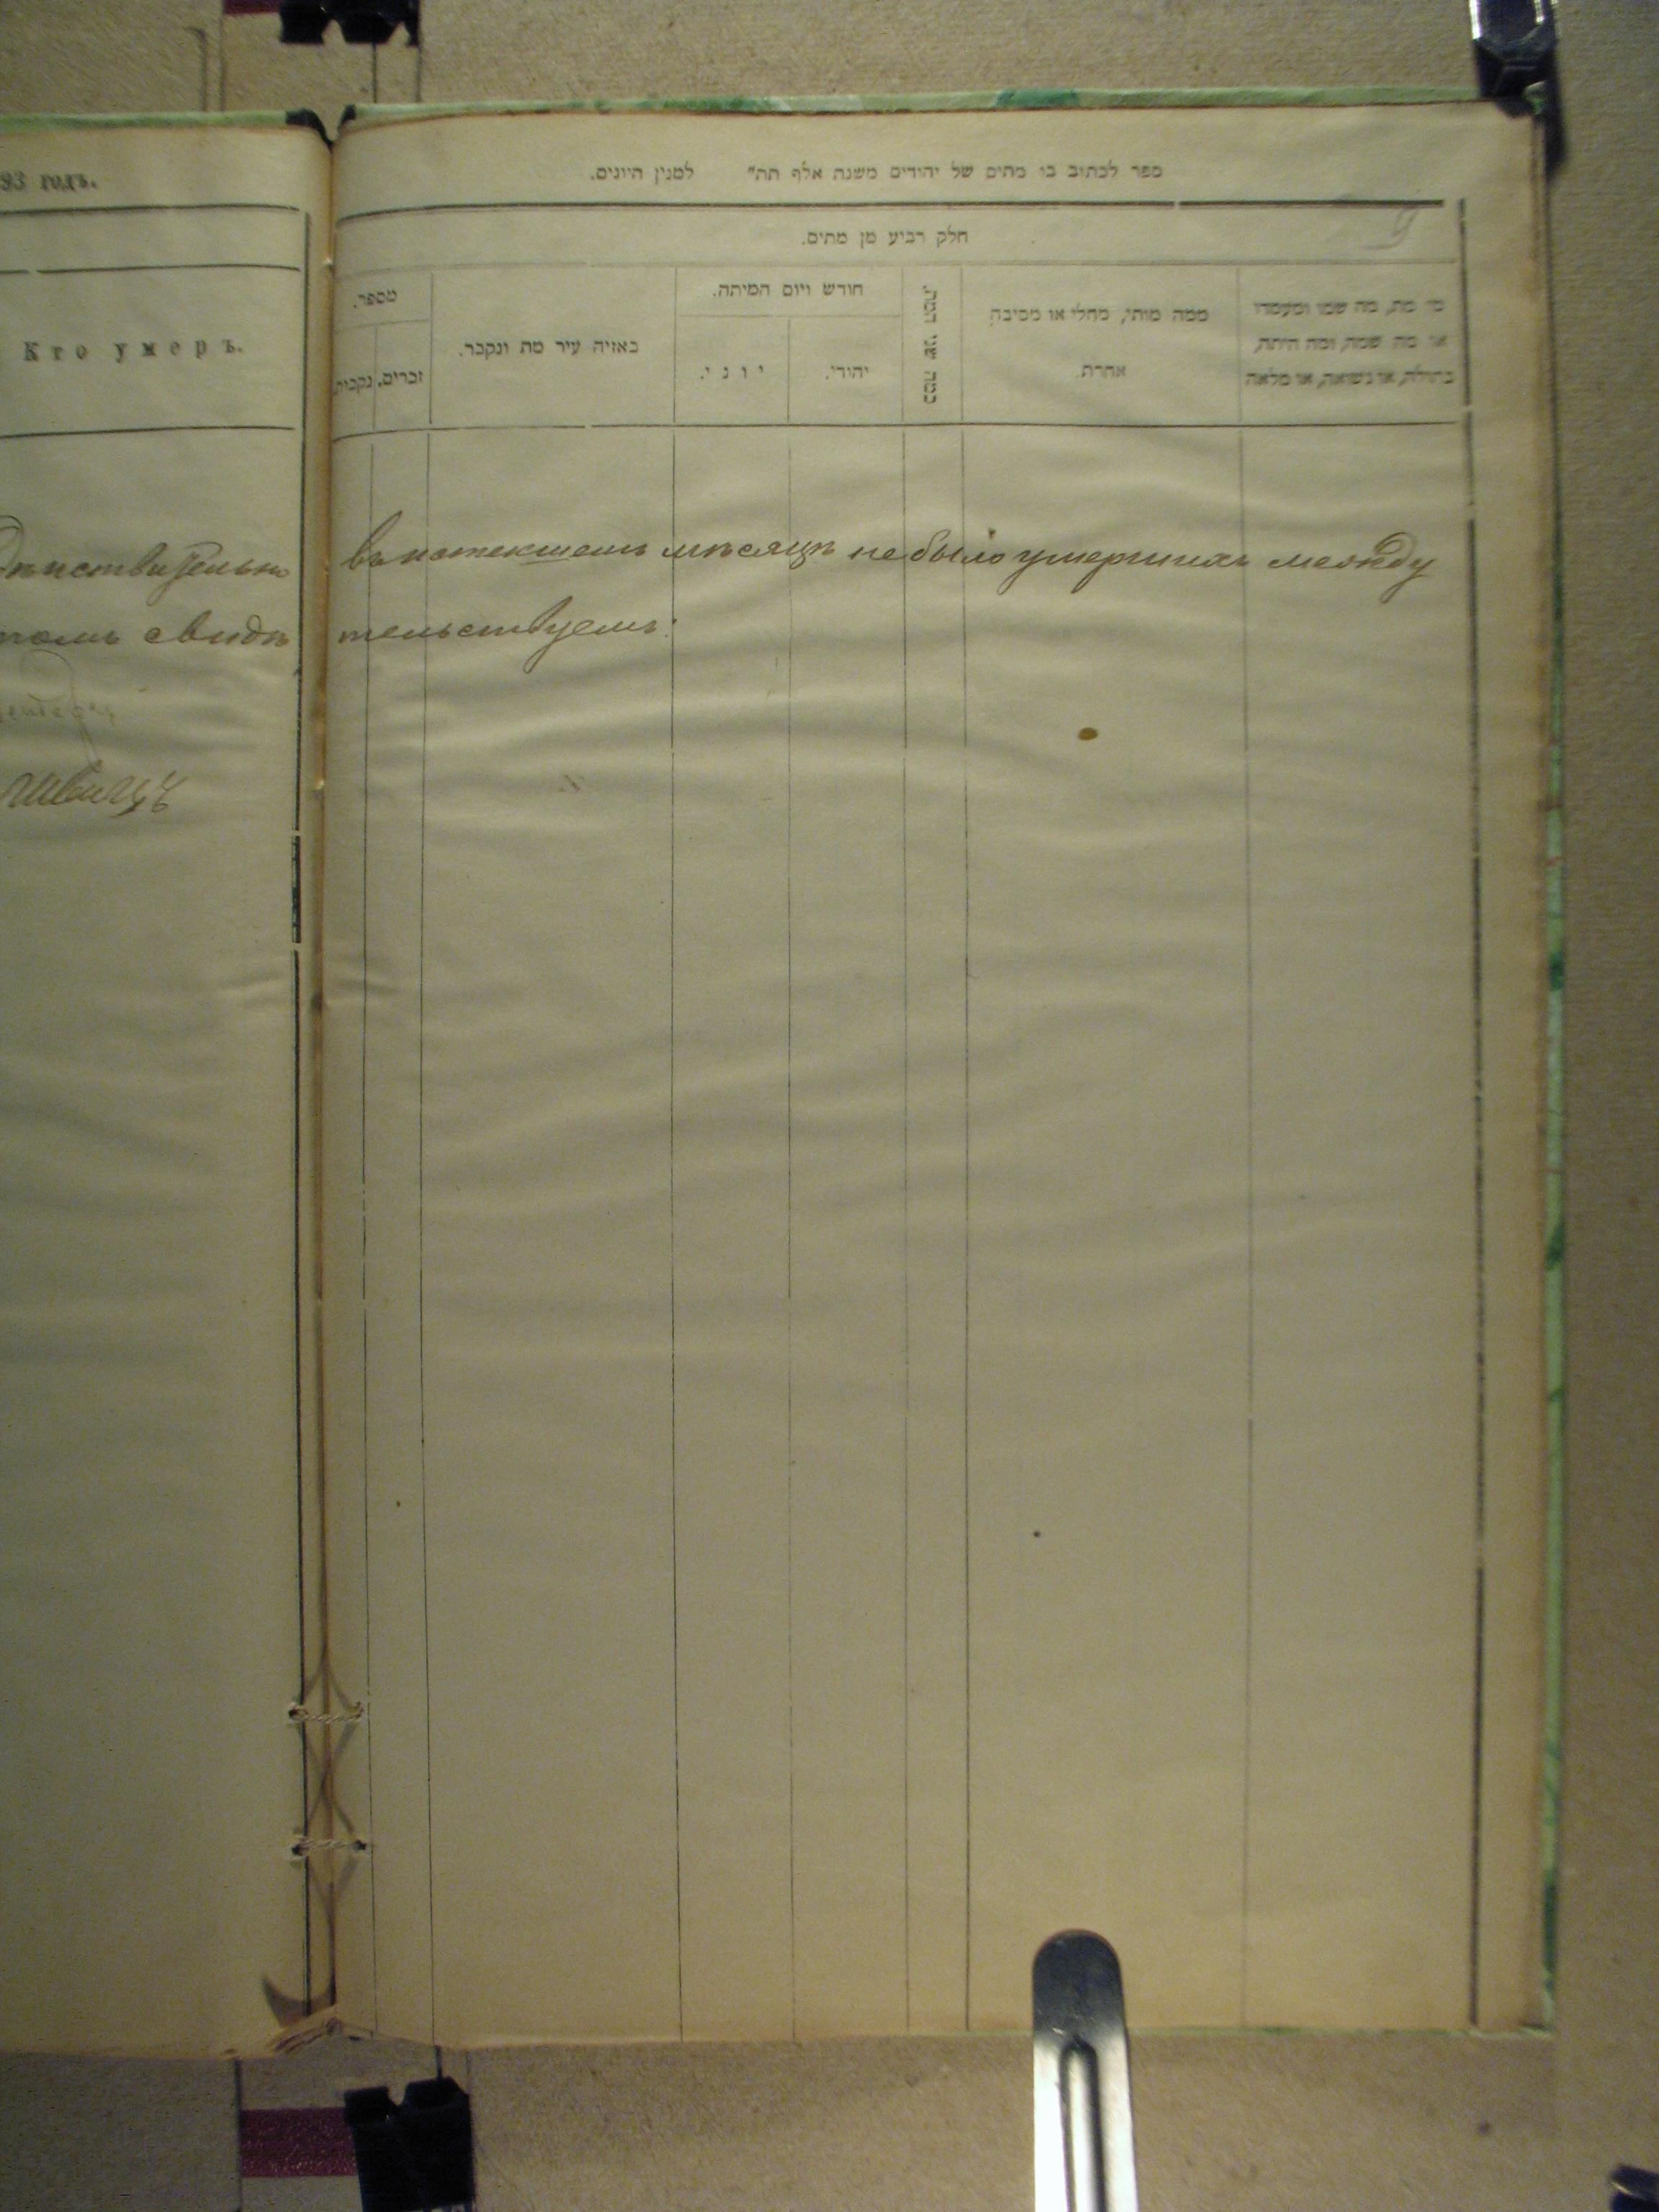 93 годъ.
Кто умеръ.
дѣйствительно
томъ свидѣ
ספר לכתוב בו מתים של יהודים משנת אלף תת״ למנין היונים.
9
חלק רביע מן מתים.
מי מת, מה שמו ומעמדו
או מה שמה, ומה היתה,
בתולה, או נשואה, או מלאה
ממה מותו, מחלי או מסיבה
אחרת
כמה שני המת
חודש ויום המיתה.
יהודי.
יוני.
באיזה עיר מת ונקבר.
מספר.
זכרים.
נקבות
въ истекшемъ мѣсяцѣ не было умершихъ между
тельствуемъ: